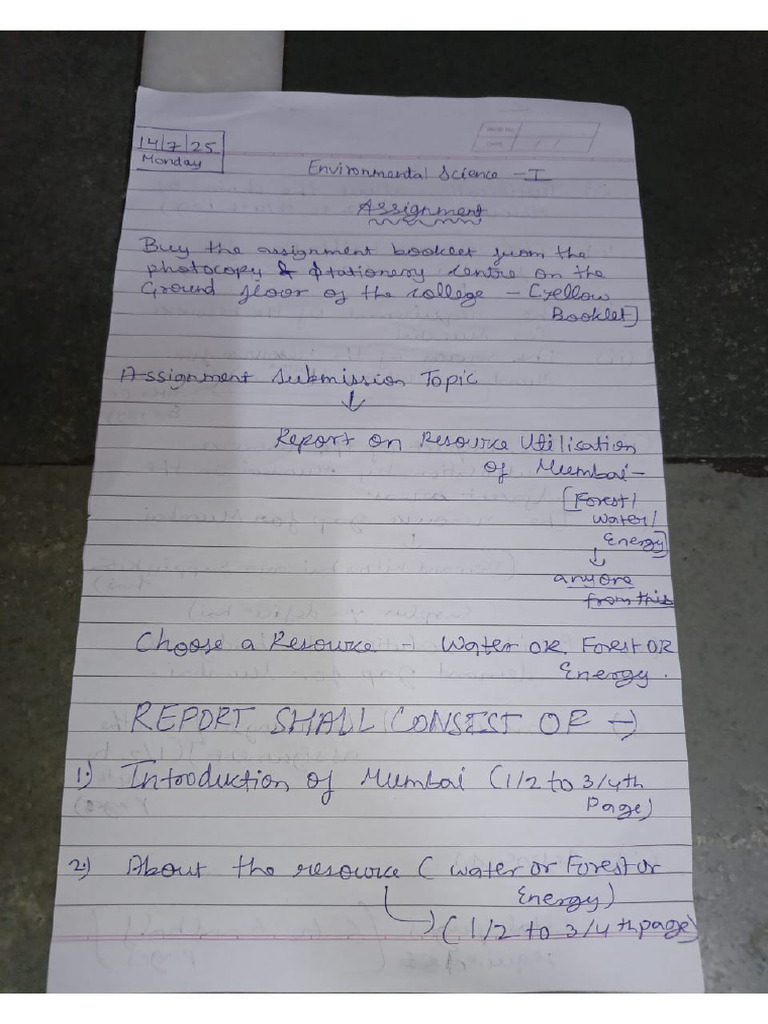 14/7/25
Monday
Environmental Science - I
Assignment
Buy the assignment booklet from the
photocopy & stationery centre on the
Ground floor of the college - [Yellow
Booklet]
Assignment Submission Topic
↓
Report on Resource Utilisation
of Mumbai -
[Forest/
Water/
Energy]
↓
anyone
from this
Choose a Resource - Water OR Forest OR
Energy.
REPORT SHALL CONSIST OF →
1.) Introduction of Mumbai (1/2 to 3/4th
Page)
2.) About the resource ( Water or Forest or
Energy)
→ (1/2 to 3/4th page)